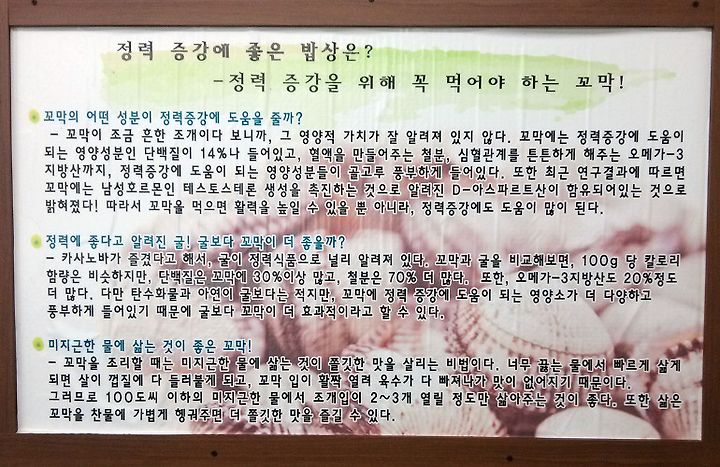 정력 증강에 좋은 밥상은?
-정력 증강을 위해 꼭 먹어야 하는 꼬막!
꼬막의 어떤 성분이 정력증강에 도움을 줄까?
- 꼬막이 조금 흔한 조개이다 보니까, 그 영양적 가치가 잘 알려져 있지 않다. 꼬막에는 정력증강에 도움이
되는 영양성분인 단백질이 14%나 들어있고, 혈액을 만들어주는 철분, 심혈관계를 튼튼하게 해주는 오메가-3
지방산까지, 정력증강에 도움이 되는 영양성분들이 골고루 풍부하게 들어있다. 또한 최근 연구결과에 따르면
꼬막에는 남성호르몬인 테스토스테론 생성을 촉진하는 것으로 알려진 D-아스파르트산이 함유되어있는 것으로
밝혀졌다! 따라서 꼬막을 먹으면 활력을 높일 수 있을 뿐 아니라, 정력증강에도 도움이 많이 된다.
정력에 좋다고 알려진 굴! 굴보다 꼬막이 더 좋을까?
- 카사노바가 즐겼다고 해서, 굴이 정력식품으로 널리 알려져 있다. 꼬막과 굴을 비교해보면, 100g 당 칼로리
함량은 비슷하지만, 단백질은 꼬막에 30%이상 많고, 철분은 70% 더 많다. 또한, 오메가-3지방산도 20%정도
더 많다. 다만 탄수화물과 아연이 굴보다는 적지만, 꼬막에 정력 증강에 도움이 되는 영양소가 더 다양하고
풍부하게 들어있기 때문에 굴보다 꼬막이 더 효과적이라고 할 수 있다.
미지근한 물에 삶는 것이 좋은 꼬막!
- 꼬막을 조리할 때는 미지근한 물에 삶는 것이 쫄깃한 맛을 살리는 비법이다. 너무 끓는 물에서 빠르게 삶게
되면 살이 껍질에 다 들러붙게 되고, 꼬막 입이 활짝 열려 육수가 다 빠져나가 맛이 없어지기 때문이다.
그러므로 100도씨 이하의 미지근한 물에서 조개입이 2~3개 열릴 정도만 삶아주는 것이 좋다. 또한 삶은
꼬막을 찬물에 가볍게 헹궈주면 더 쫄깃한 맛을 즐길 수 있다.